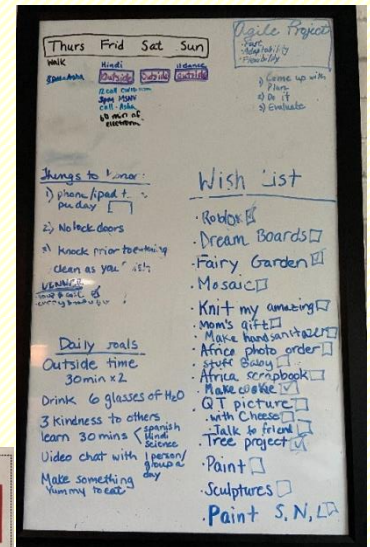 Thurs Fri Sat Sun
Walk
Hindi
Outside Outside Outside
call
60 min of
Agile Project
Adaptability
Flexibility
1) Come up with
Plan
2) Do it
3) Evaluate
Things to honor:
1) phone/ipad
per day
2) No lock doors
3) Knock prior to entering
clean as you
Daily goals
Outside time
30 min x2
Drink 6 glasses of H2O
3 Kindness to others
learn 30 mins spanish
Hindi
Science
Video chat with 1 person/
group a
day
Make something
yummy to eat
Wish List
Roblox
Dream Boards
Fairy Garden
Mosaic
Knit my amazing
mom's gift
Make handsanitizer
Africa photo order
Stuff Baby
Africa scrapbook
Make cookie
QT picture
with Cheese
Talk to friend
Tree project
Paint
Sculptures
Paint S, N, L